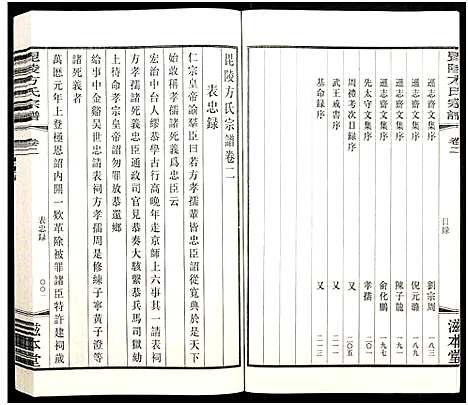 毘陵方氏宗譜 卷二
目錄
遜志齋文集序 劉宗周 一八三
遜志齋文集序 倪元璐 一八九
遜志齋文集序 陳子龍 一九四
遜志齋文集序 俞化鵬 一九七
先太守文集序 孝孺 二〇一
周禮考次目錄序 又 二〇五
武王戒書序 又 二一一
基命錄序 又 二一三
滋本堂
毘陵方氏宗譜卷二
表忠錄
仁宗皇帝諭羣臣曰若方孝孺輩皆忠臣詔從寬典於是天
下始敢稱孝孺諸死義爲忠臣云
宏治中台人繆恭學古行高晚年走京師上六事其一請表
方孝孺諸死義忠臣通政司官見恭奏大駭繫恭兵馬司獄劾
上待命孝宗皇帝詔勿罪放恭還鄉
給事中金谿吳世忠請表祠方孝孺周是修練子寧黃子澄
諸死義者
萬厯元年上登極恩詔內開一欵革除被罪諸臣特許建祠歲
毘陵方氏宗譜
卷二
表忠錄
〇〇一
滋本堂